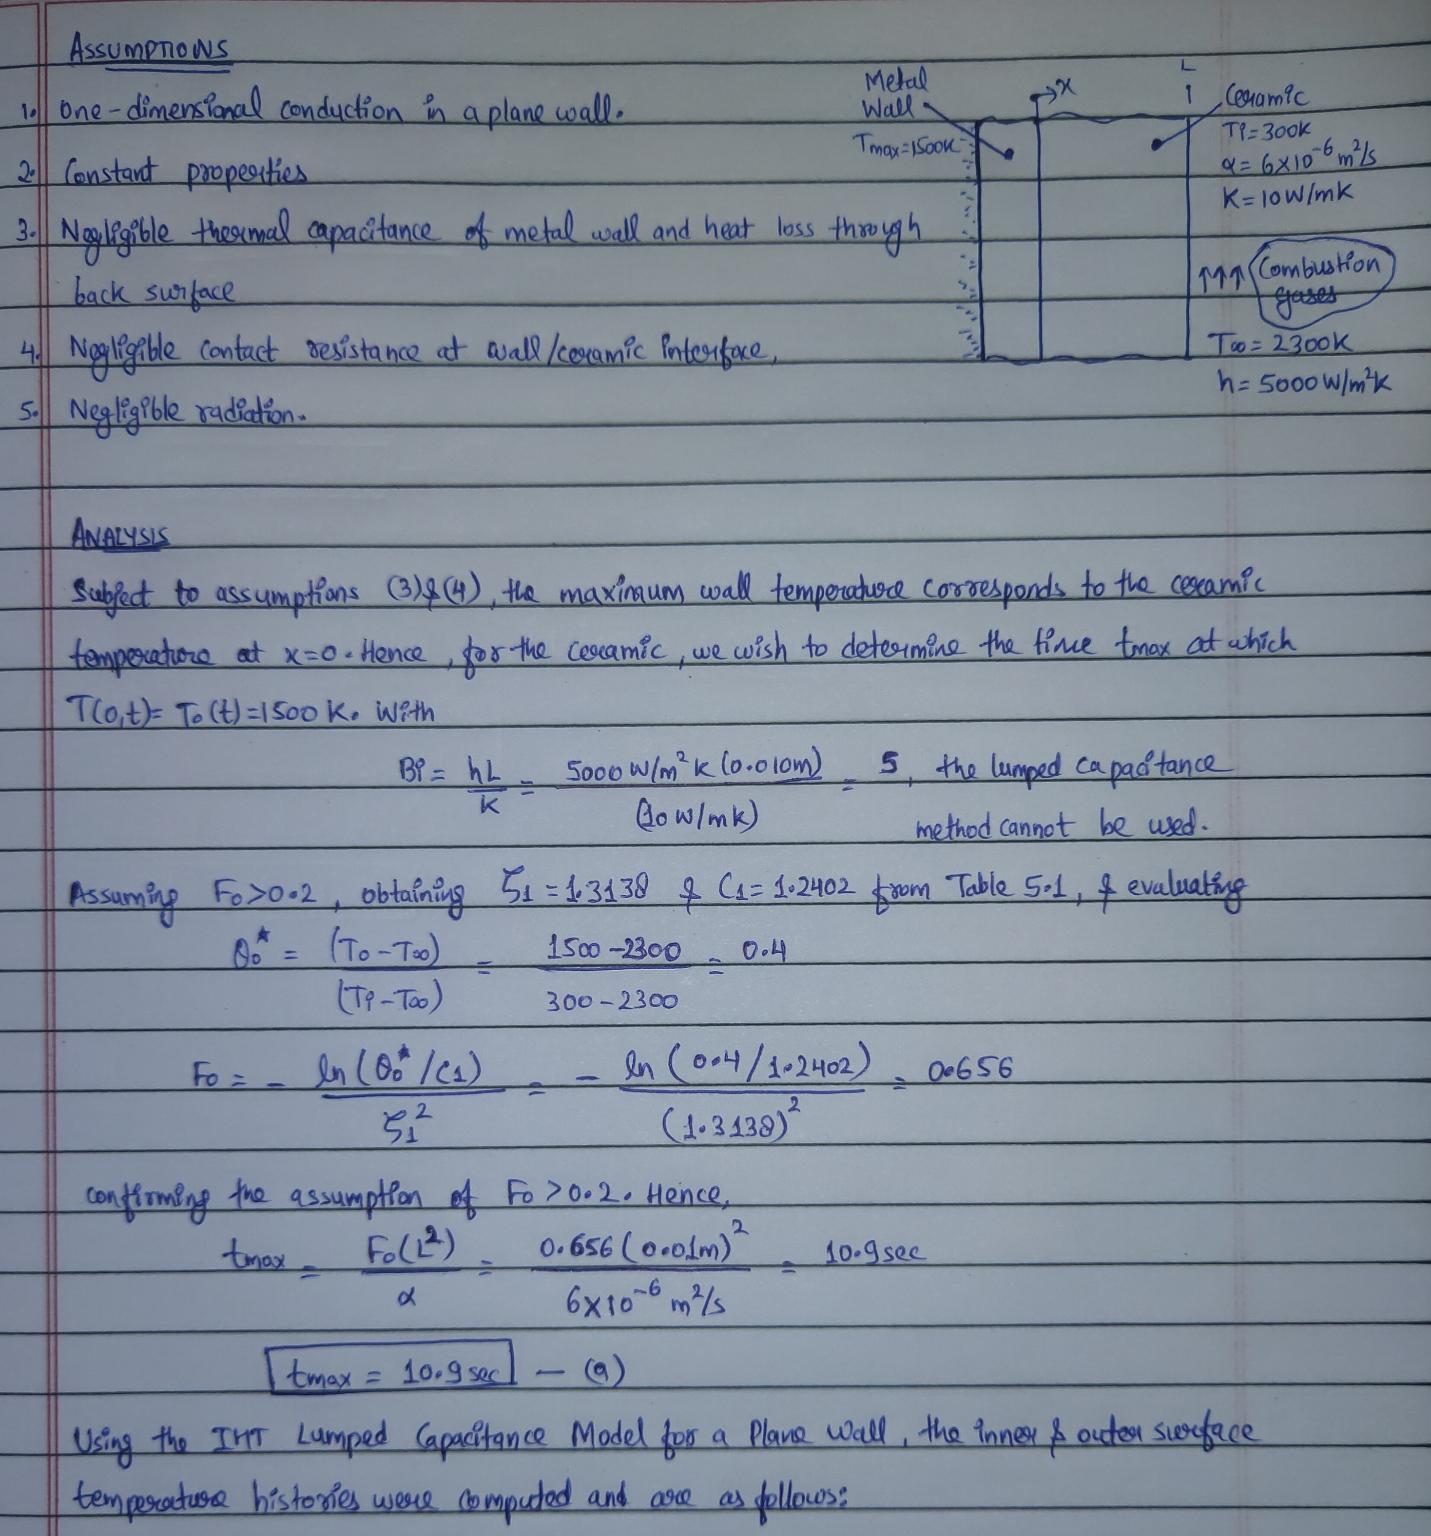 ASSUMPTIONS
1. One-dimensional conduction in a plane wall.
2. Constant properties
3. Negligible thermal capacitance of metal wall and heat loss through
back surface
4. Negligible contact resistance at wall/ceramic interface,
5. Negligible radiation.
Metal
Wall
Tmax=1500K
x
L
Ceramic
Ti=300K
α=6×10⁻⁶ m²/s
K=10W/mK
Combustion
gases
T∞=2300K
h=5000W/m²K
ANALYSIS
Subject to assumptions (3)&(4), the maximum wall temperature corresponds to the ceramic
temperature at x=0. Hence, for the ceramic, we wish to determine the time tmax at which
T(0,t)= To(t)=1500 K. With
Bi = hL/K = 5000 W/m²K (0.010m)/(10 W/mK) = 5, the lumped capacitance
method cannot be used.
Assuming Fo>0.2, obtaining ζ1=1.3138 & C1=1.2402 from Table 5.1, & evaluating
θo* = (To-T∞)/(Ti-T∞) = 1500-2300/300-2300 = 0.4
Fo = - ln(θo*/C1)/ζ1² = - ln(0.4/1.2402)/(1.3138)² = 0.656
confirming the assumption of Fo>0.2. Hence,
tmax = Fo(L²)/α = 0.656(0.01m)²/6×10⁻⁶ m²/s = 10.9sec
tmax = 10.9 sec - (a)
Using the IHT Lumped Capacitance Model for a Plane Wall, the inner & outer surface
temperature histories were computed and are as follows: